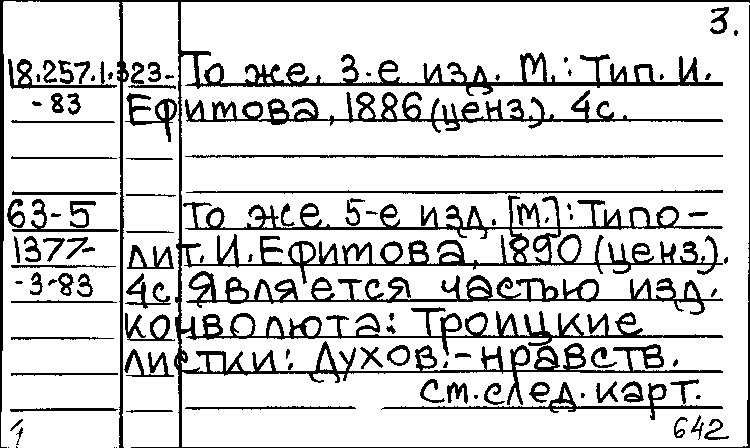 3.
18.257.1.323- То же. 3-е изд. М.: Тип. И.
-83 Ефимова, 1886 (ценз.). 4с.
63-5 То же. 5-е изд. [М.]: Типо-
1377- лит. И. Ефимова, 1890 (ценз.).
-3-83 4с. Является частью изд.
конволюта: Троицкие
листки: Духов.-нравств.
см. след. карт.
1 642